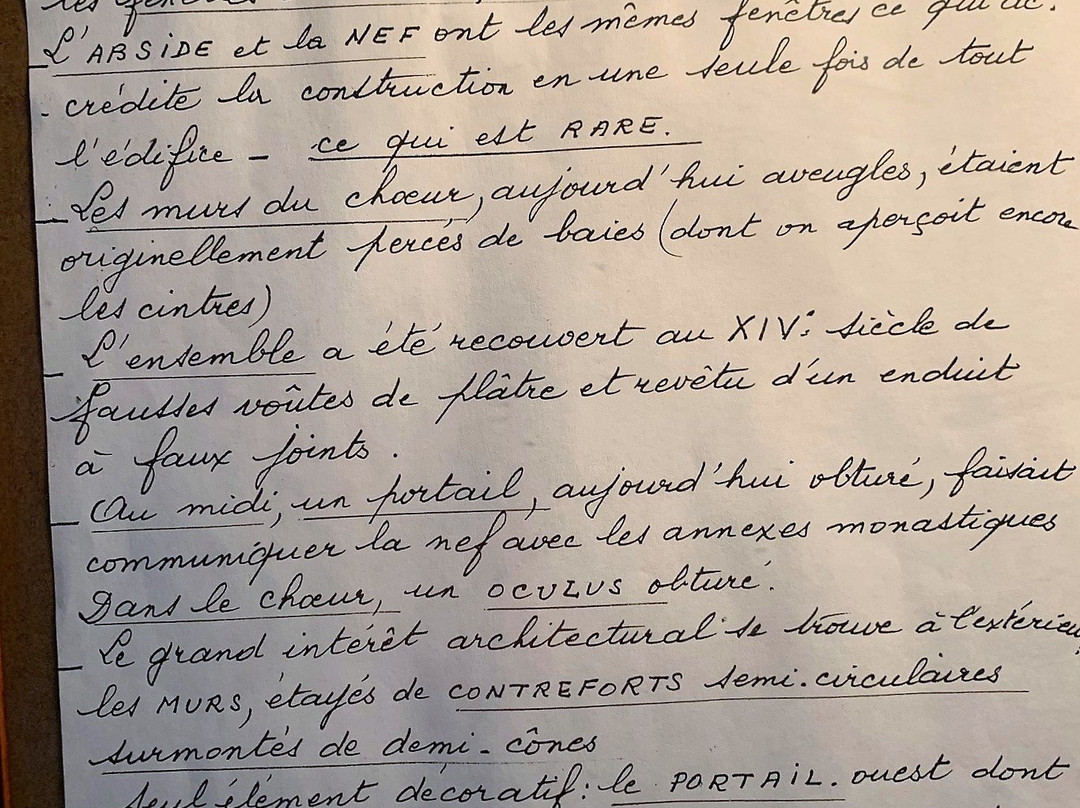 les fenêtres
_ L'ABSIDE et la NEF ont les mêmes fenêtres ce qui ac.
- crédite la construction en une seule fois de tout
l'édifice - ce qui est RARE.
_ Les murs du chœur, aujourd'hui aveugles, étaient
originellement percés de baies (dont on aperçoit encore
les cintres)
_ L'ensemble a été recouvert au XIVe siècle de
fausses voûtes de plâtre et revêtu d'un enduit
à faux joints.
_ Au midi, un portail, aujourd'hui obturé, faisait
communiquer la nef avec les annexes monastiques
Dans le chœur, un OCULUS obturé.
_ Le grand intérêt architectural se trouve à l'extérieur,
les MURS, étayés de CONTREFORTS semi-circulaires
surmontés de demi-cônes
seul élément décoratif : le PORTAIL. ouest dont